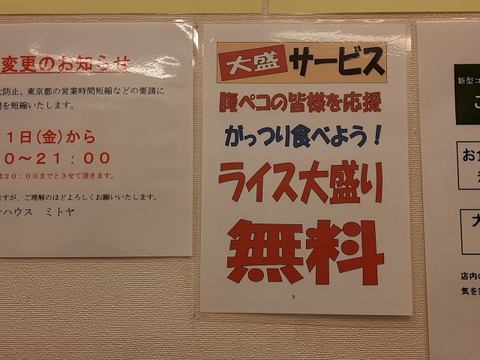 変更のお知らせ
防止、東京都の営業時間短縮などの要請に
間を短縮いたします。
1日(金)から
0～21：00
は20：00までとさせて頂きます。
ますが、ご理解のほどよろしくお願いいたします。
ハウス ミトヤ
大盛サービス
腹ペコの皆様を応援
がっつり食べよう！
ライス大盛り
無料
新型コ
お食
店内の
気を